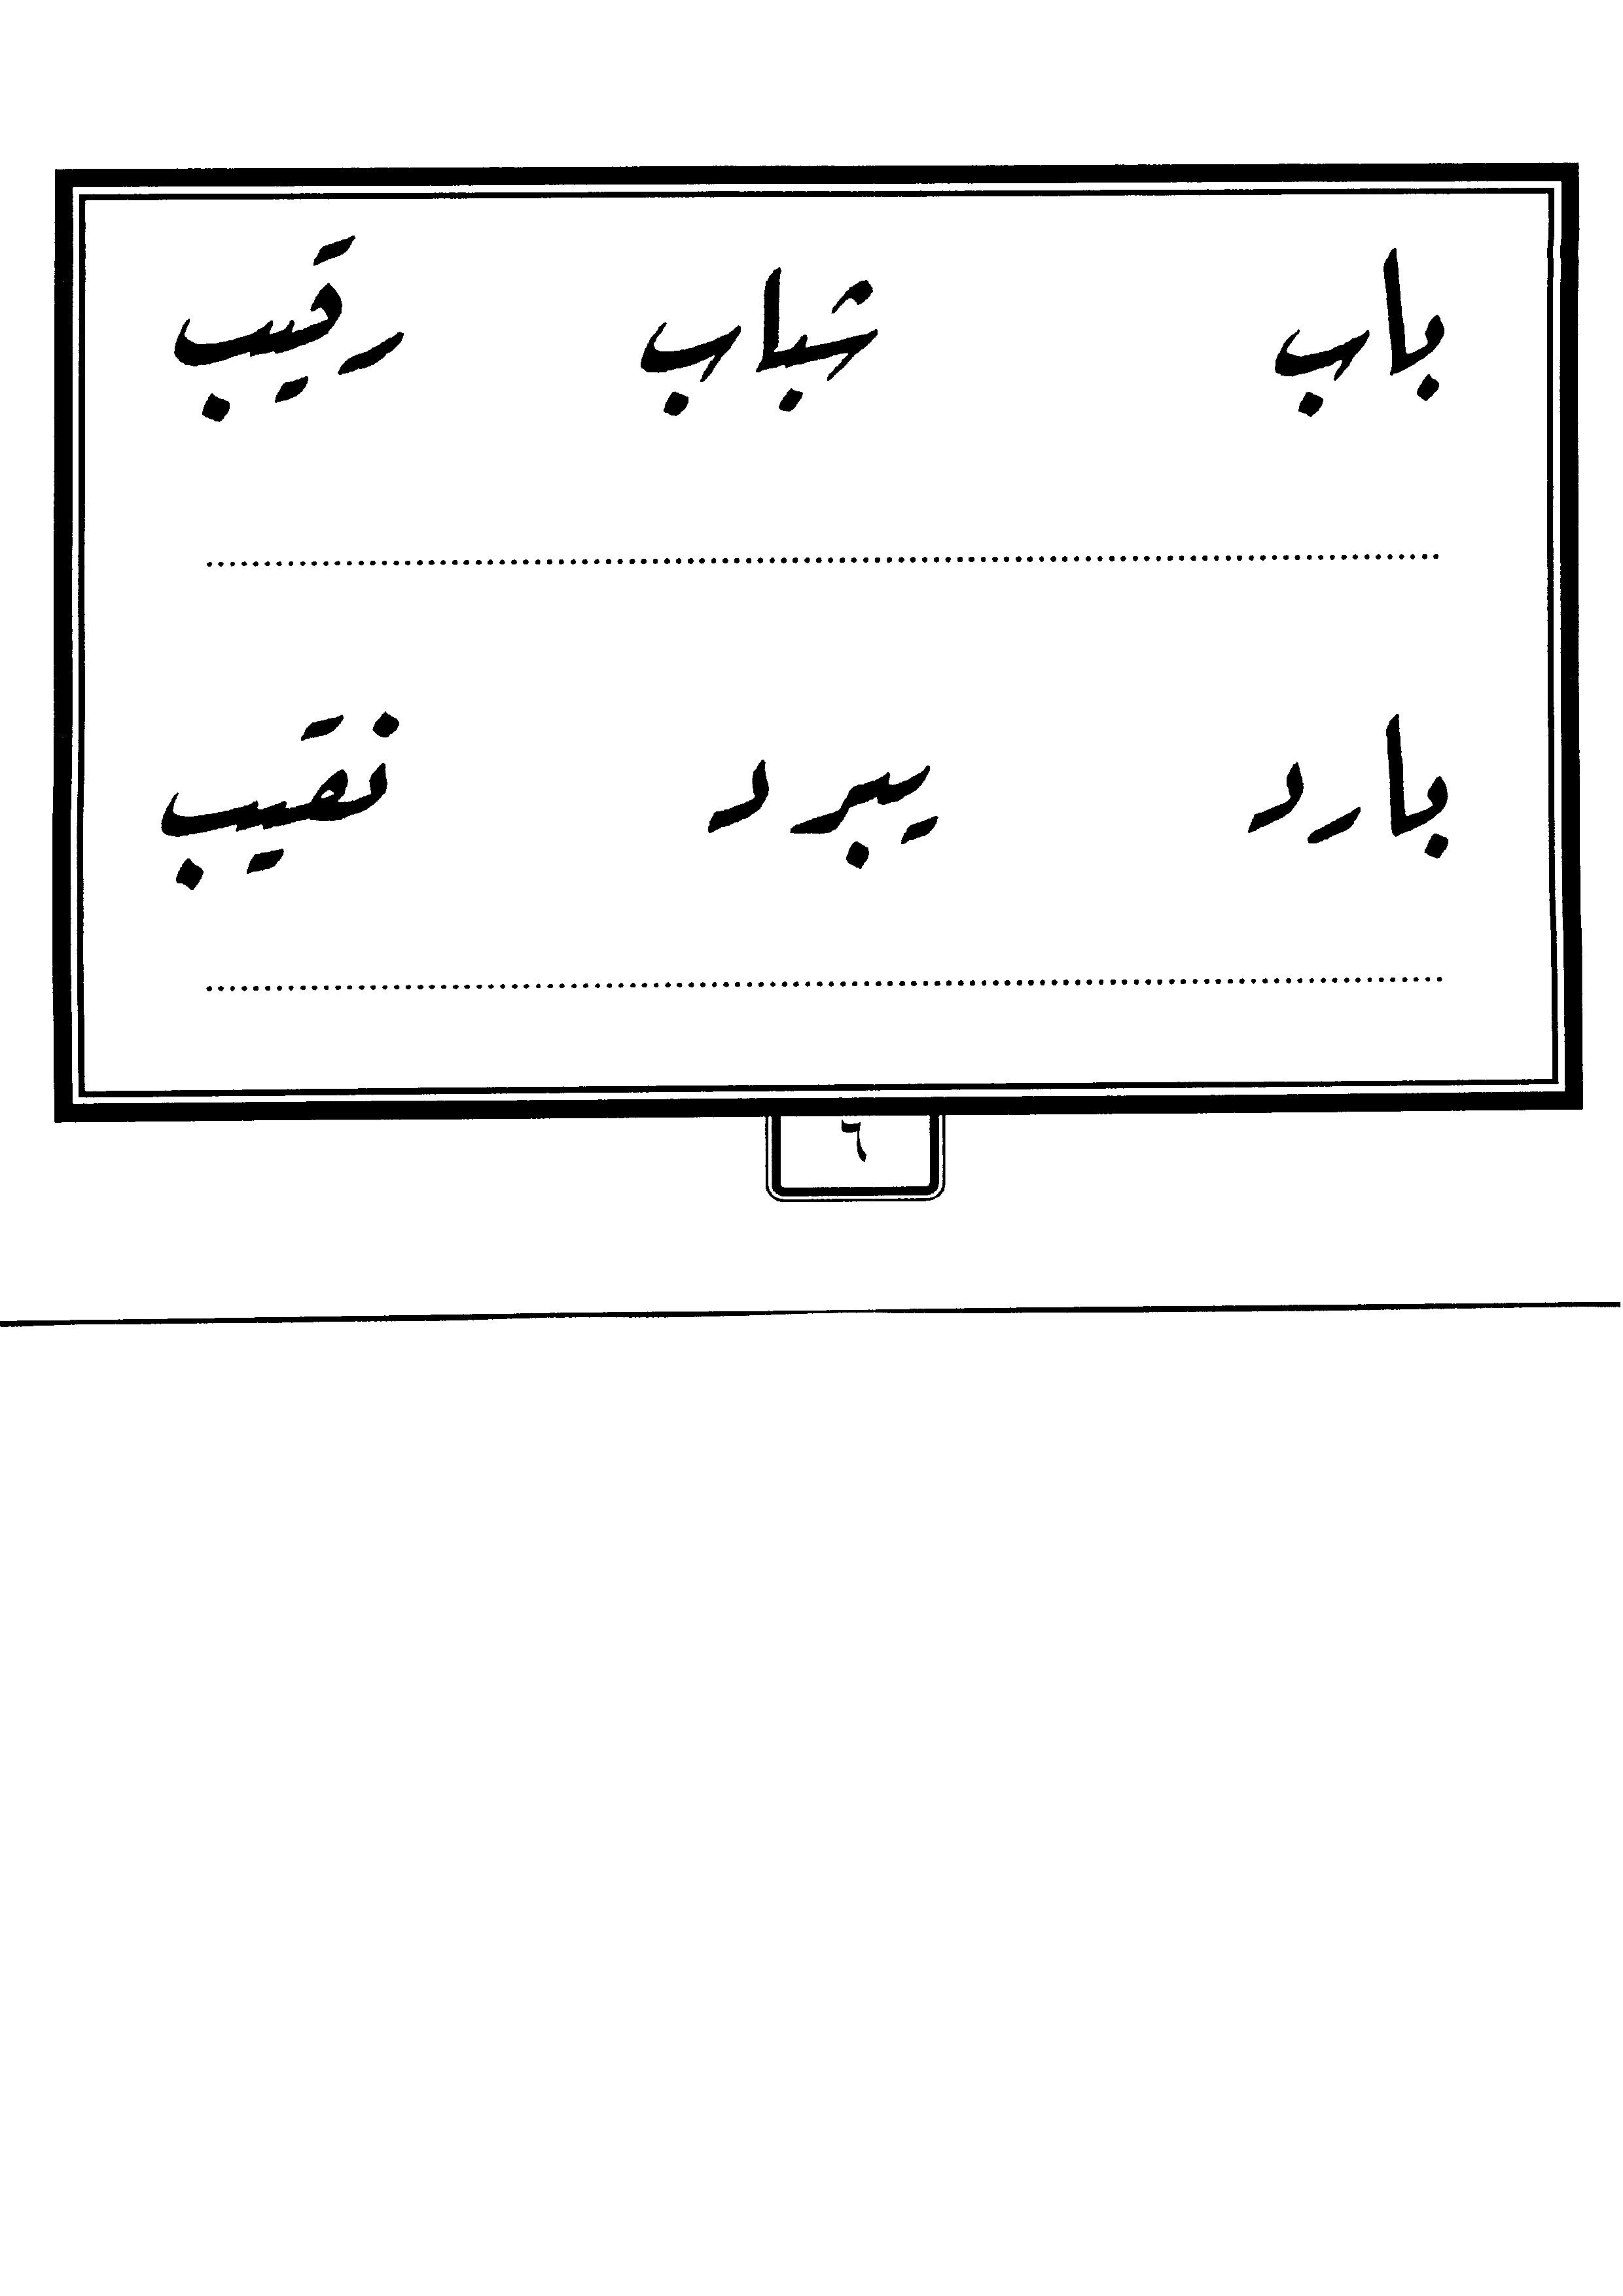 باب شباب رقيب
بارد يبرد نقيب
٦